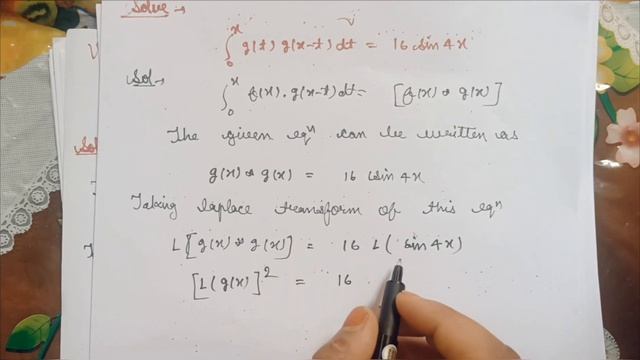 Solve →
∫₀ˣ g(t) g(x-t) dt = 16 sin 4x
Sol →
∫₀ˣ f(x). g(x-t) dt = [f(x) * g(x)]
The given eqⁿ can be written as
g(x) * g(x) = 16 sin 4x
Taking laplace transform of this eqⁿ
L[g(x) * g(x)] = 16 L( sin 4x)
[L(g(x)]² = 16